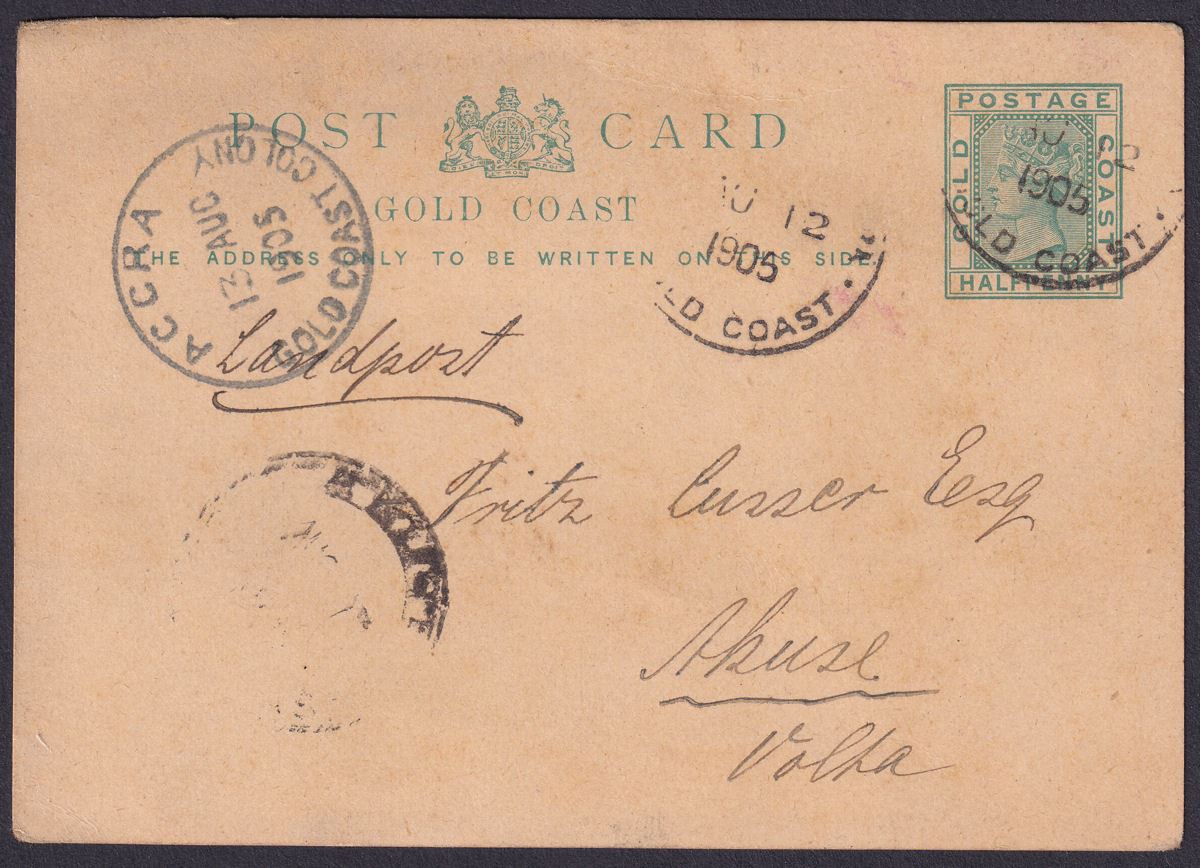 POST CARD
GOLD COAST
THE ADDRESS ONLY TO BE WRITTEN ON THIS SIDE.
POSTAGE
GOLD
COAST
HALFPENNY
ACCRA
13 AUG
1905
GOLD COAST COLONY
12
1905
GOLD COAST
12
1905
GOLD COAST
Landpost
Fritz Cusser Esq
Akuse
Volta